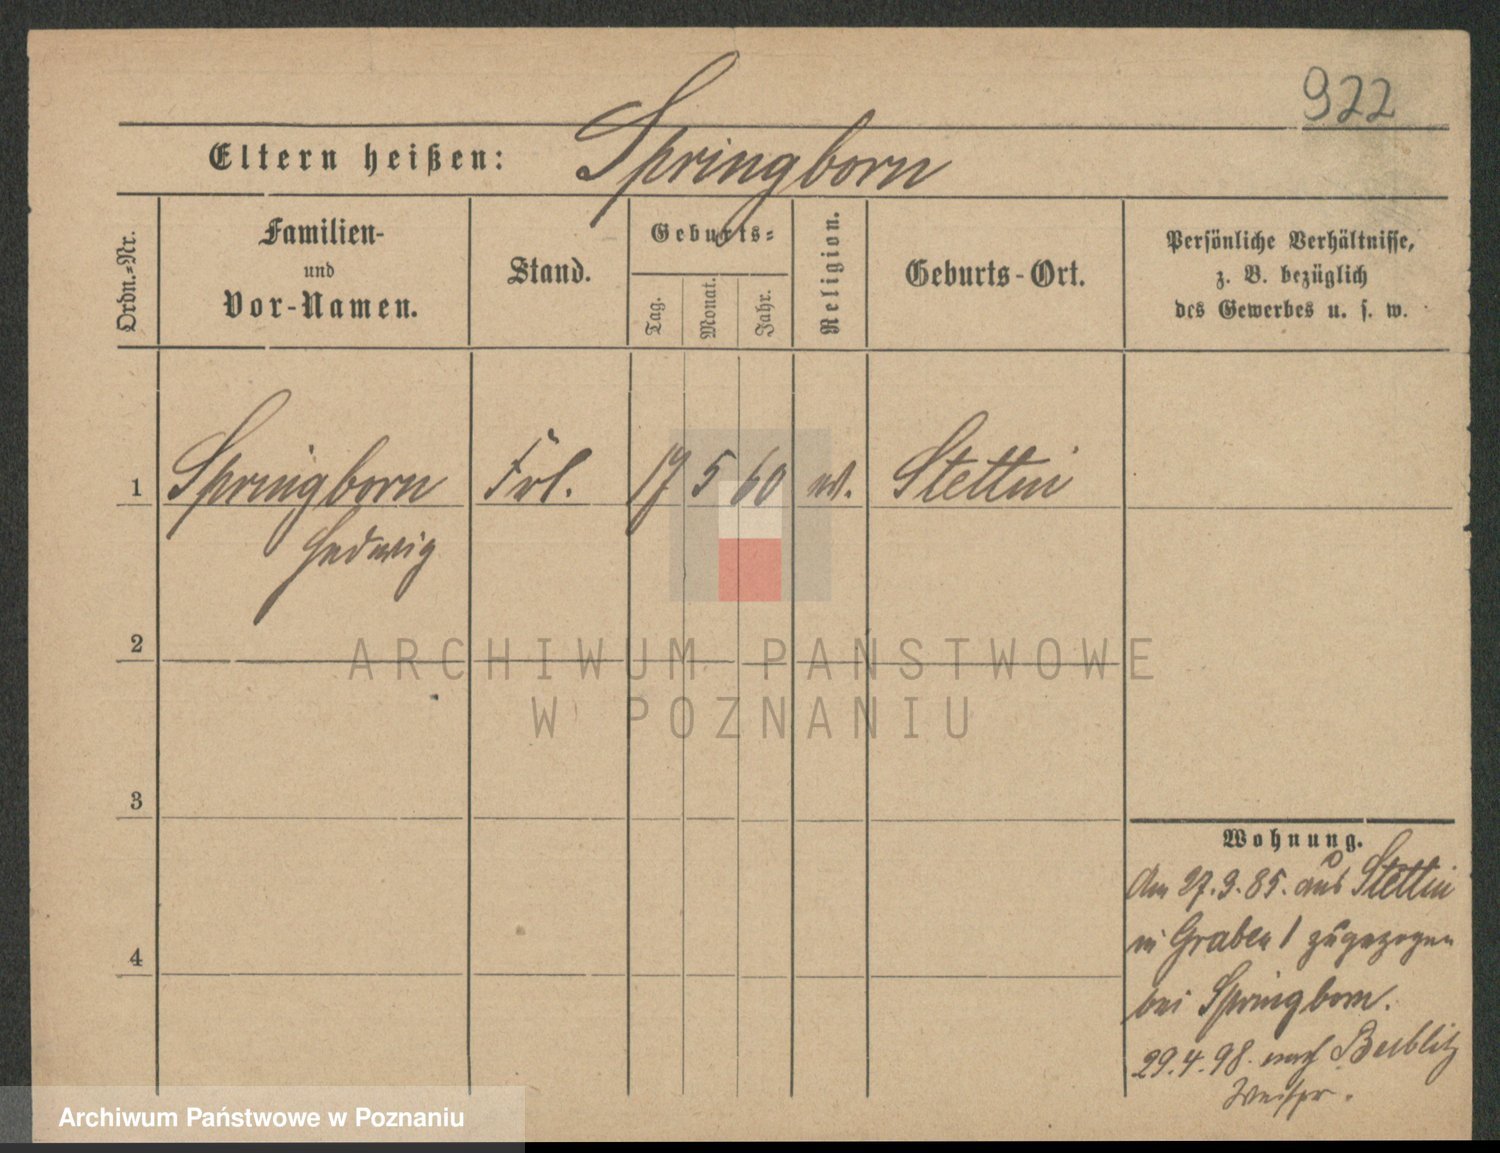 922
Eltern heißen: Springborn
Ordn.-Nr.
Familien-
und
Vor-Namen.
Stand.
Geburts-
Tag.
Monat.
Jahr.
Religion.
Geburts-Ort.
Persönliche Verhältnisse,
z. B. bezüglich
des Gewerbes u. s. w.
1 Springborn Frl. 17 5 60 ev. Stettin
Hedwig
2
ARCHIWUM PAŃSTWOWE
W POZNANIU
3
4
Wohnung.
Am 27.3.85. aus Stettin
in Graben 1 zugezogen
bei Springborn.
29.4.98. nach
Archiwum Państwowe w Poznaniu